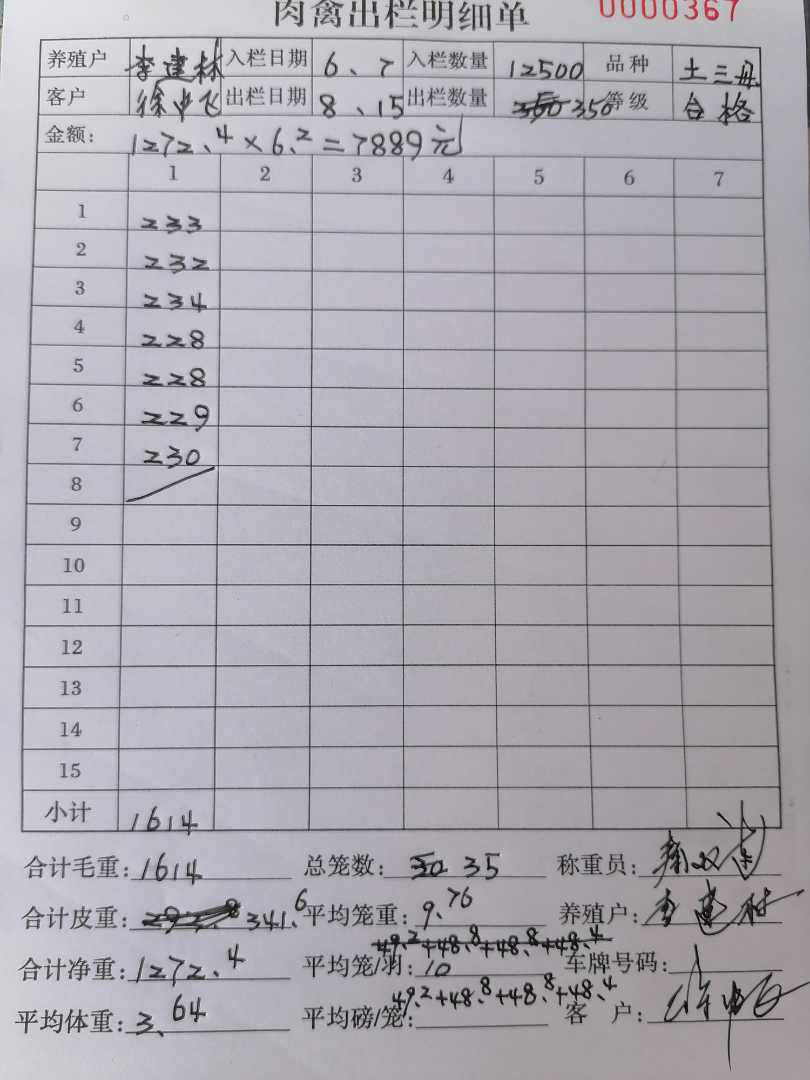 肉禽出栏明细单 0000367
养殖户 李建林 入栏日期 6、7 入栏数量 12500 品种 土三母
客户 徐中飞 出栏日期 8、15 出栏数量 350 等级 合格
金额: 1272.4×6.2=7889元
1 2 3 4 5 6 7
1 233
2 232
3 234
4 228
5 228
6 229
7 230
8
9
10
11
12
13
14
15
小计 1614
合计毛重: 1614 总笼数: 35 称重员:
合计皮重: 341.6 平均笼重: 9.76 养殖户: 李建林
49.2+48.8+48.8+48.4
合计净重: 1272.4 平均笼/羽: 10 车牌号码:
49.2+48.8+48.8+48.4
平均体重: 3.64 平均磅/笼: 客 户: 徐中飞